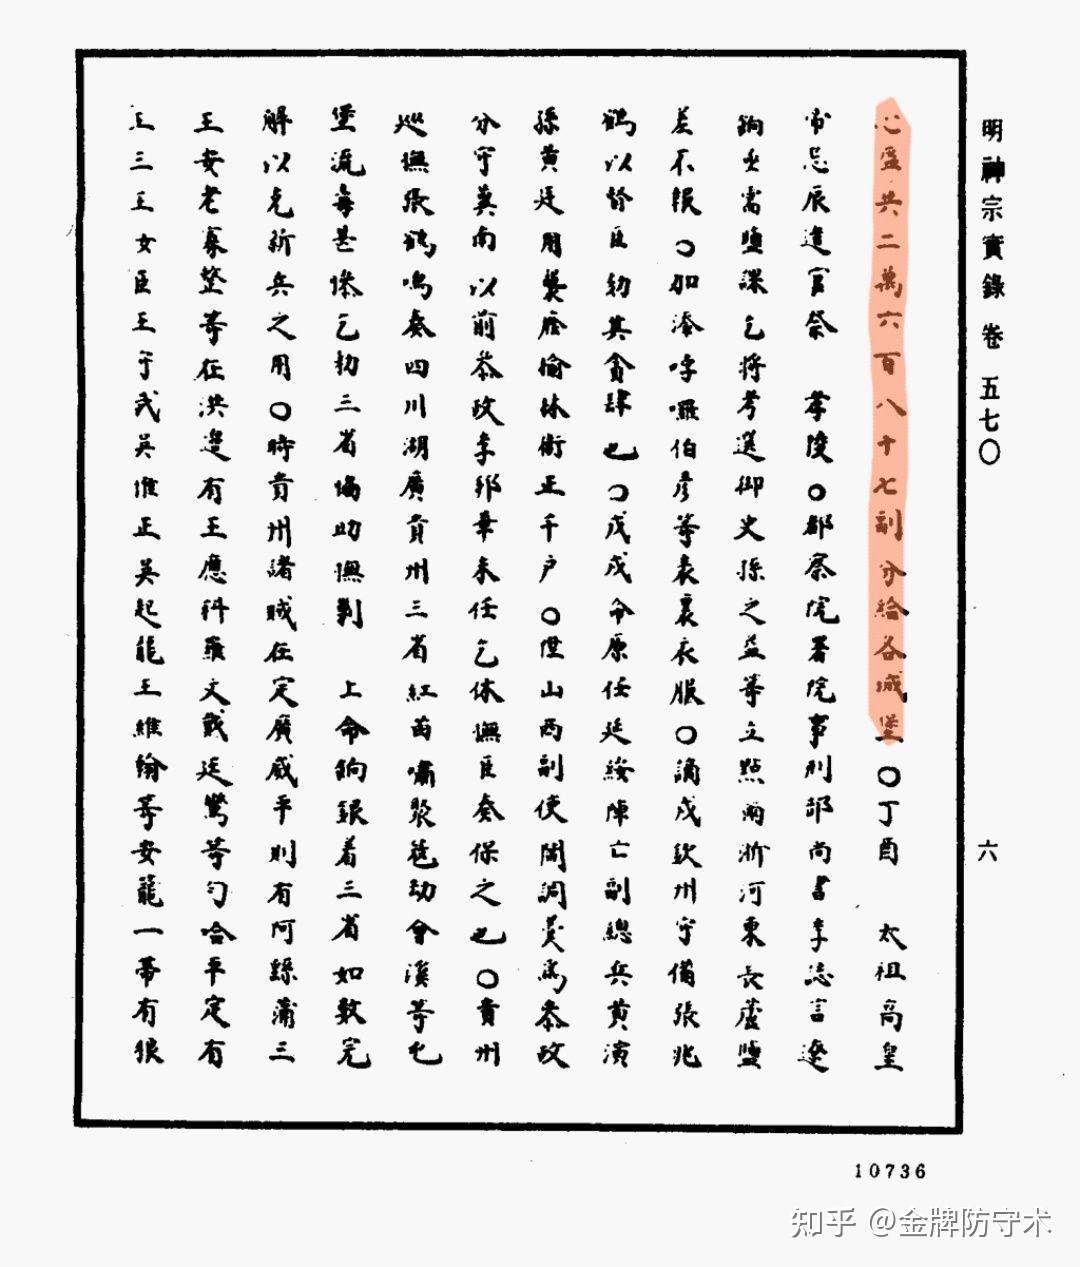 明神宗實錄 卷 五七〇
六
心盔共二萬六百八十七副分給各城堡〇丁酉 太祖高皇
帝忌辰遣官祭 孝陵〇都察院署院事刑部尚書李誌言遼
餉全需鹽課乞將考選御史孫之益等立點兩浙河東長蘆鹽
差不報〇加添哱囉伯彥等表裏衣服〇謫戍欽州守備張兆
鶴以督臣劾其貪肆也〇戊戌命原任延綏陣亡副總兵黃演
孫黃廷用襲陞榆林衛正千戶〇陞山西副使閻調羹為參政
分守冀南以前參政李邦華未任乞休撫臣奏保之也〇貴州
巡撫張鶴鳴奏四川湖廣貴州三省紅苗嘯聚乾劫會溪等屯
堡流毒甚慘乞勑三省協助撫剿 上命餉銀着三省如數完
解以充新兵之用〇時貴州諸賊在定廣威平則有阿縣蒲三
王安老寡整等在洪邊有王應科羅文戴廷鸞等勾合平定有
王三王女臣王守武吳惟正吳起龍王維翰等安龍一帶有狼
10736
知乎 @金牌防守术